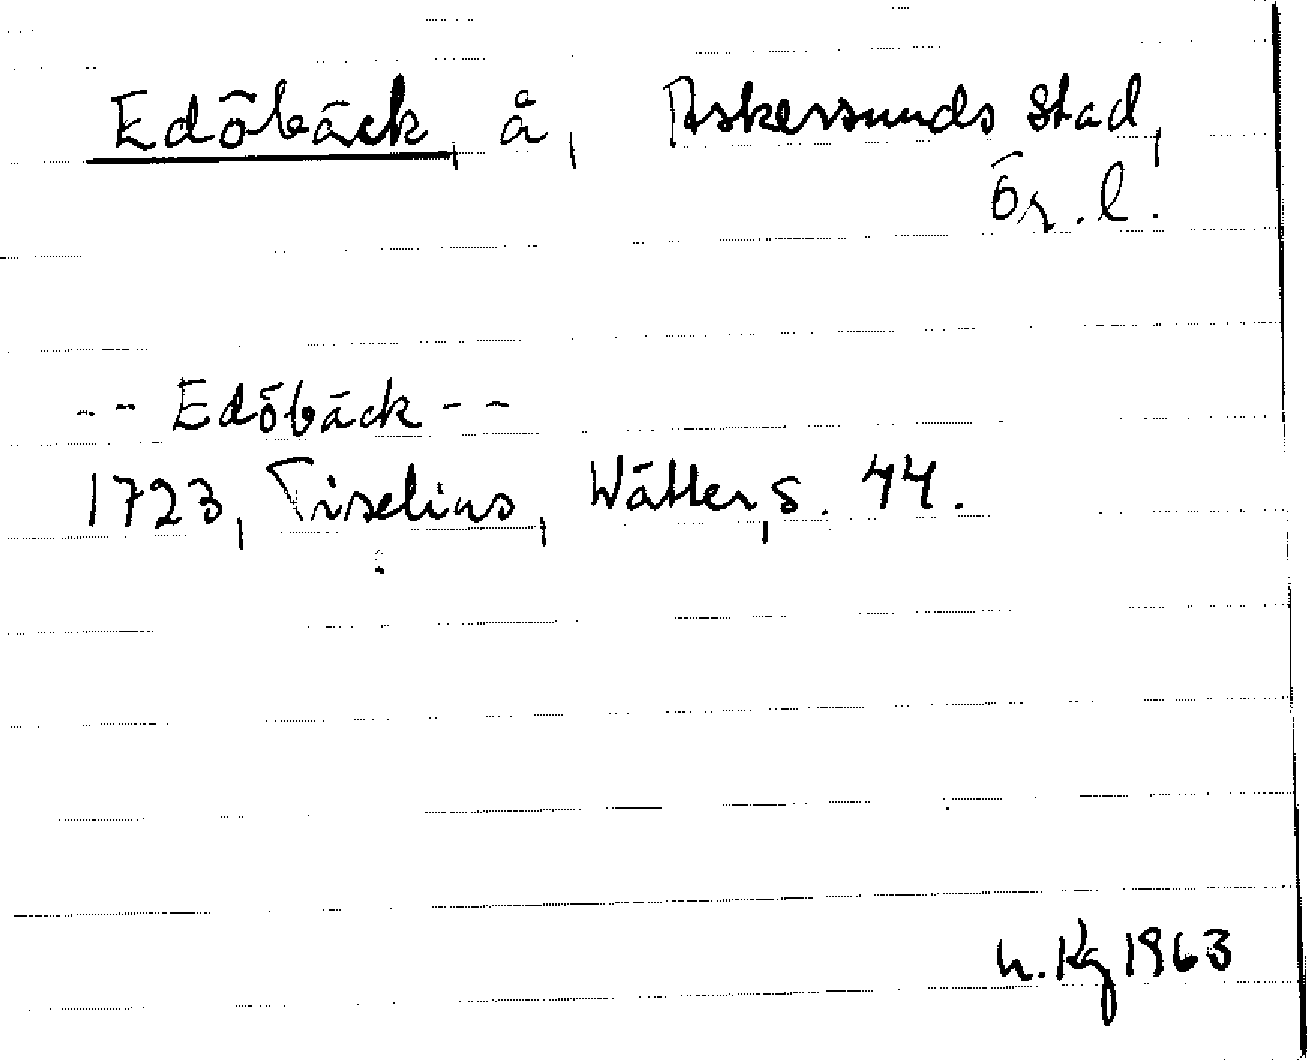 Edöbäck, å, Askersunds stad,
Ör. l.
-- Edöbäck --
1723, Tiselius, Wätter, s. 44.
h. Kg 1963